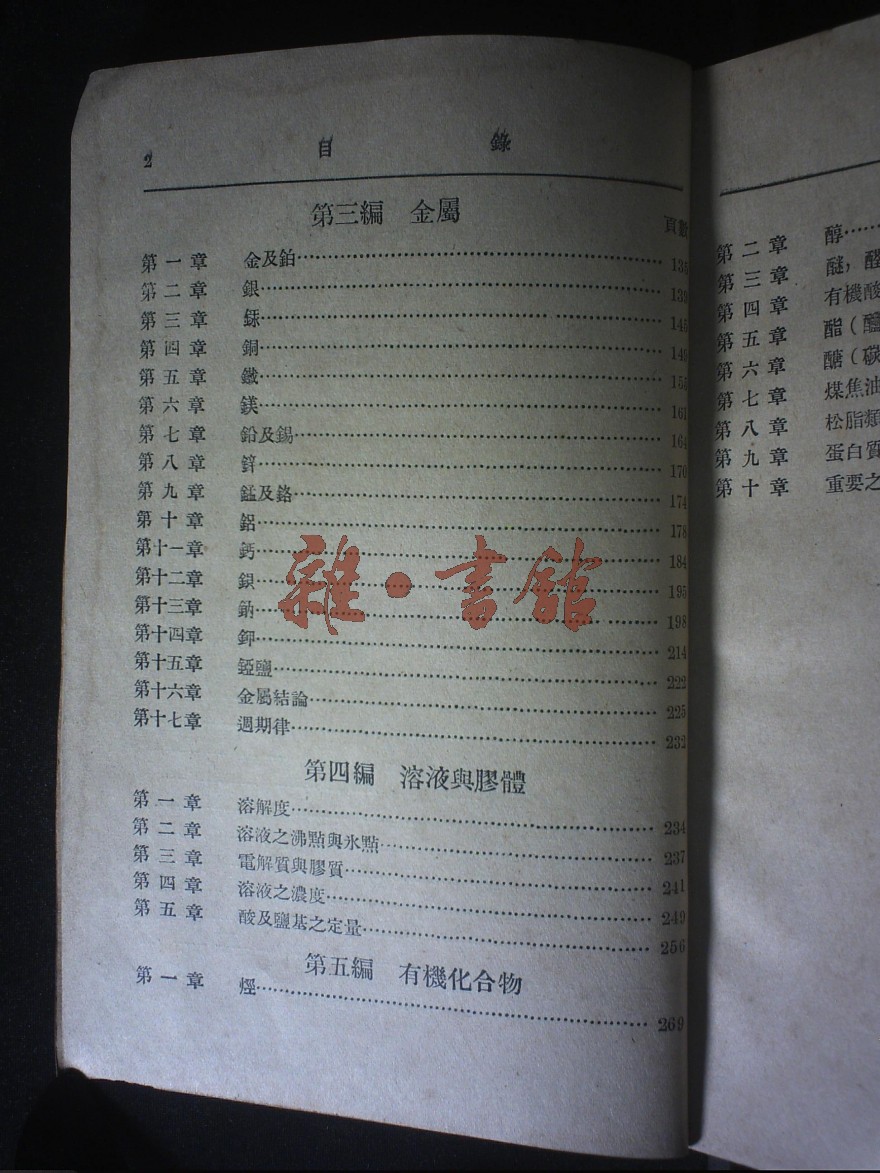 2 目 錄
第三編 金屬
頁數
第一章 金及鉑 136
第二章 銀 139
第三章 銾 145
第四章 銅 149
第五章 鐵 155
第六章 鎂 161
第七章 鉛及錫 164
第八章 鋅 170
第九章 錳及鉻 174
第十章 鋁 178
第十一章 鈣 184
第十二章 鋇 195
第十三章 鈉 198
第十四章 鉀 214
第十五章 錏鹽 222
第十六章 金屬結論 225
第十七章 週期律 232
第四編 溶液與膠體
第一章 溶解度 234
第二章 溶液之沸點與氷點 237
第三章 電解質與膠質 241
第四章 溶液之濃度 249
第五章 酸及鹽基之定量 256
第五編 有機化合物
第一章 烴 269
第二章 醇
第三章 醚，醛
第四章 有機酸
第五章 酯（醯
第六章 醣（碳
第七章 煤焦油
第八章 松脂類
第九章 蛋白質
第十章 重要之
雜·書館